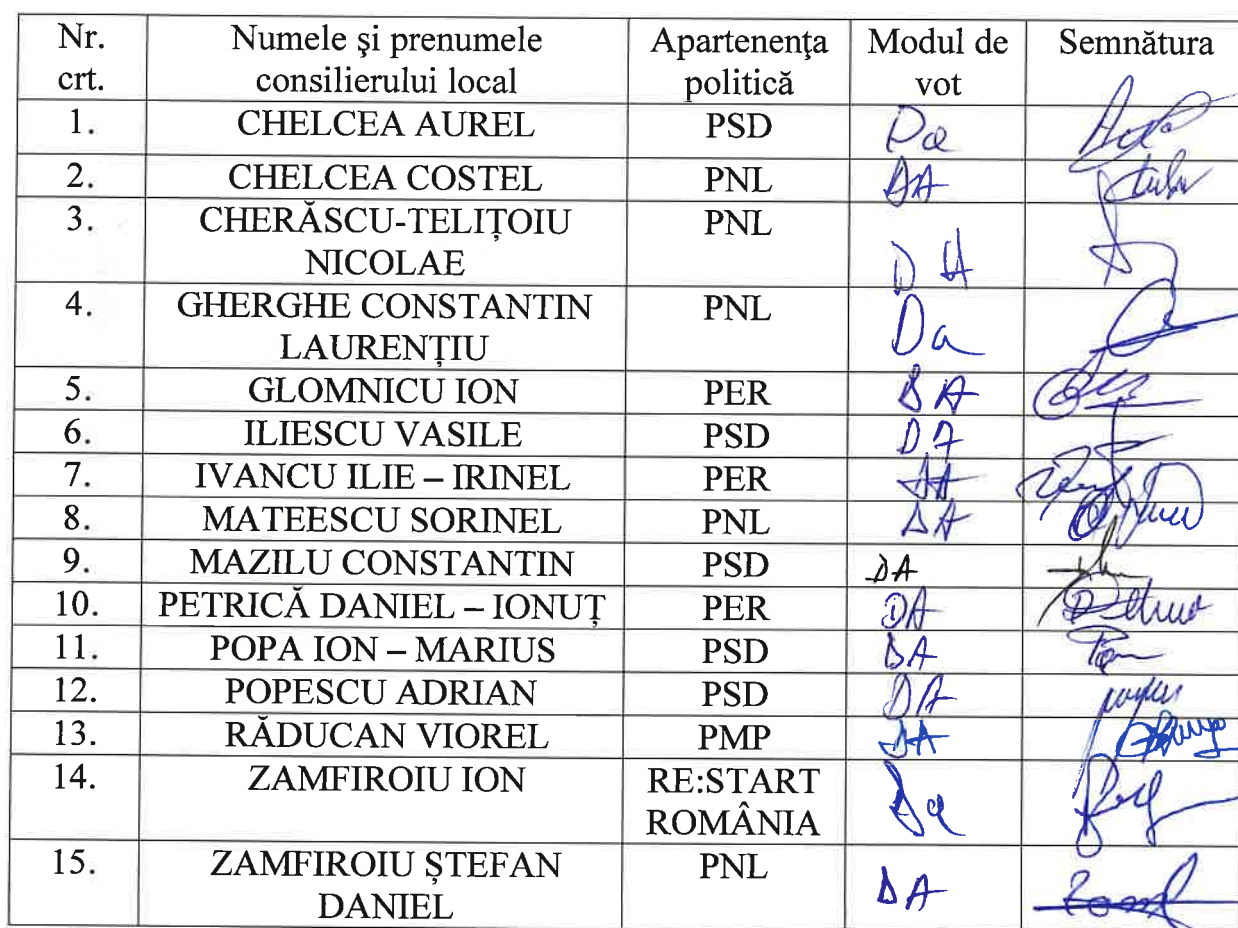 Nr. crt. Numele și prenumele consilierului local Apartenenţa politică Modul de vot Semnătura
1. CHELCEA AUREL PSD Da
2. CHELCEA COSTEL PNL DA
3. CHERĂSCU-TELIȚOIU NICOLAE PNL DA
4. GHERGHE CONSTANTIN LAURENȚIU PNL Da
5. GLOMNICU ION PER DA
6. ILIESCU VASILE PSD DA
7. IVANCU ILIE – IRINEL PER DA
8. MATEESCU SORINEL PNL DA
9. MAZILU CONSTANTIN PSD DA
10. PETRICĂ DANIEL – IONUȚ PER DA
11. POPA ION – MARIUS PSD DA
12. POPESCU ADRIAN PSD DA
13. RĂDUCAN VIOREL PMP DA
14. ZAMFIROIU ION RE:START ROMÂNIA Da
15. ZAMFIROIU ȘTEFAN DANIEL PNL DA